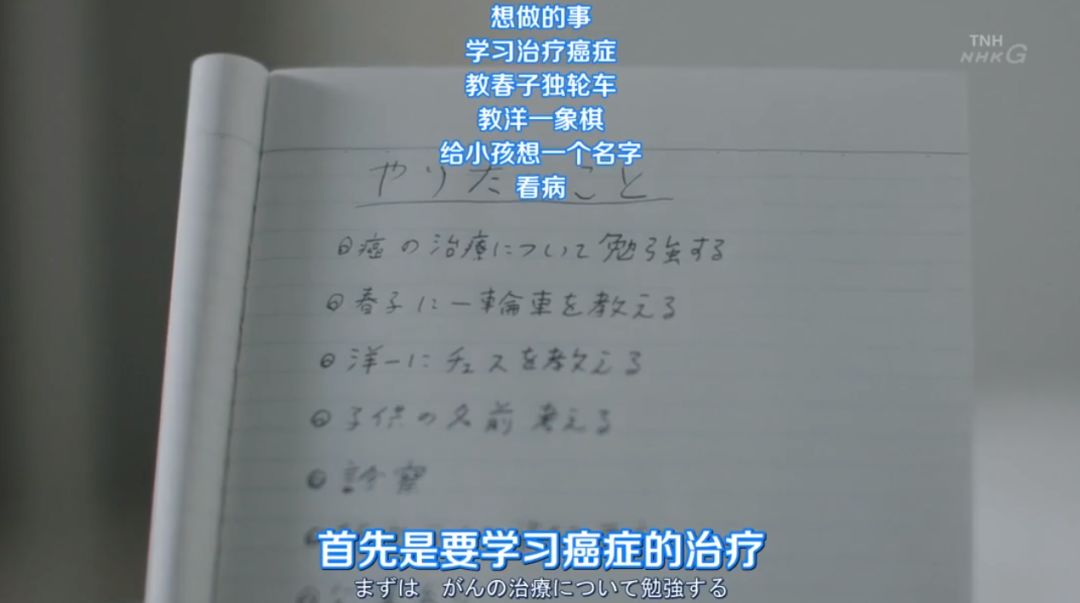 想做的事
TNH
NHKG
学习治疗癌症
教春子独轮车
教洋一象棋
给小孩想一个名字
看病
やりたいこと
癌の治療について勉強する
春子に一輪車を教える
洋一にチェスを教える
子供の名前考える
診察
首先是要学习癌症的治疗
まずは がんの治療について勉強する